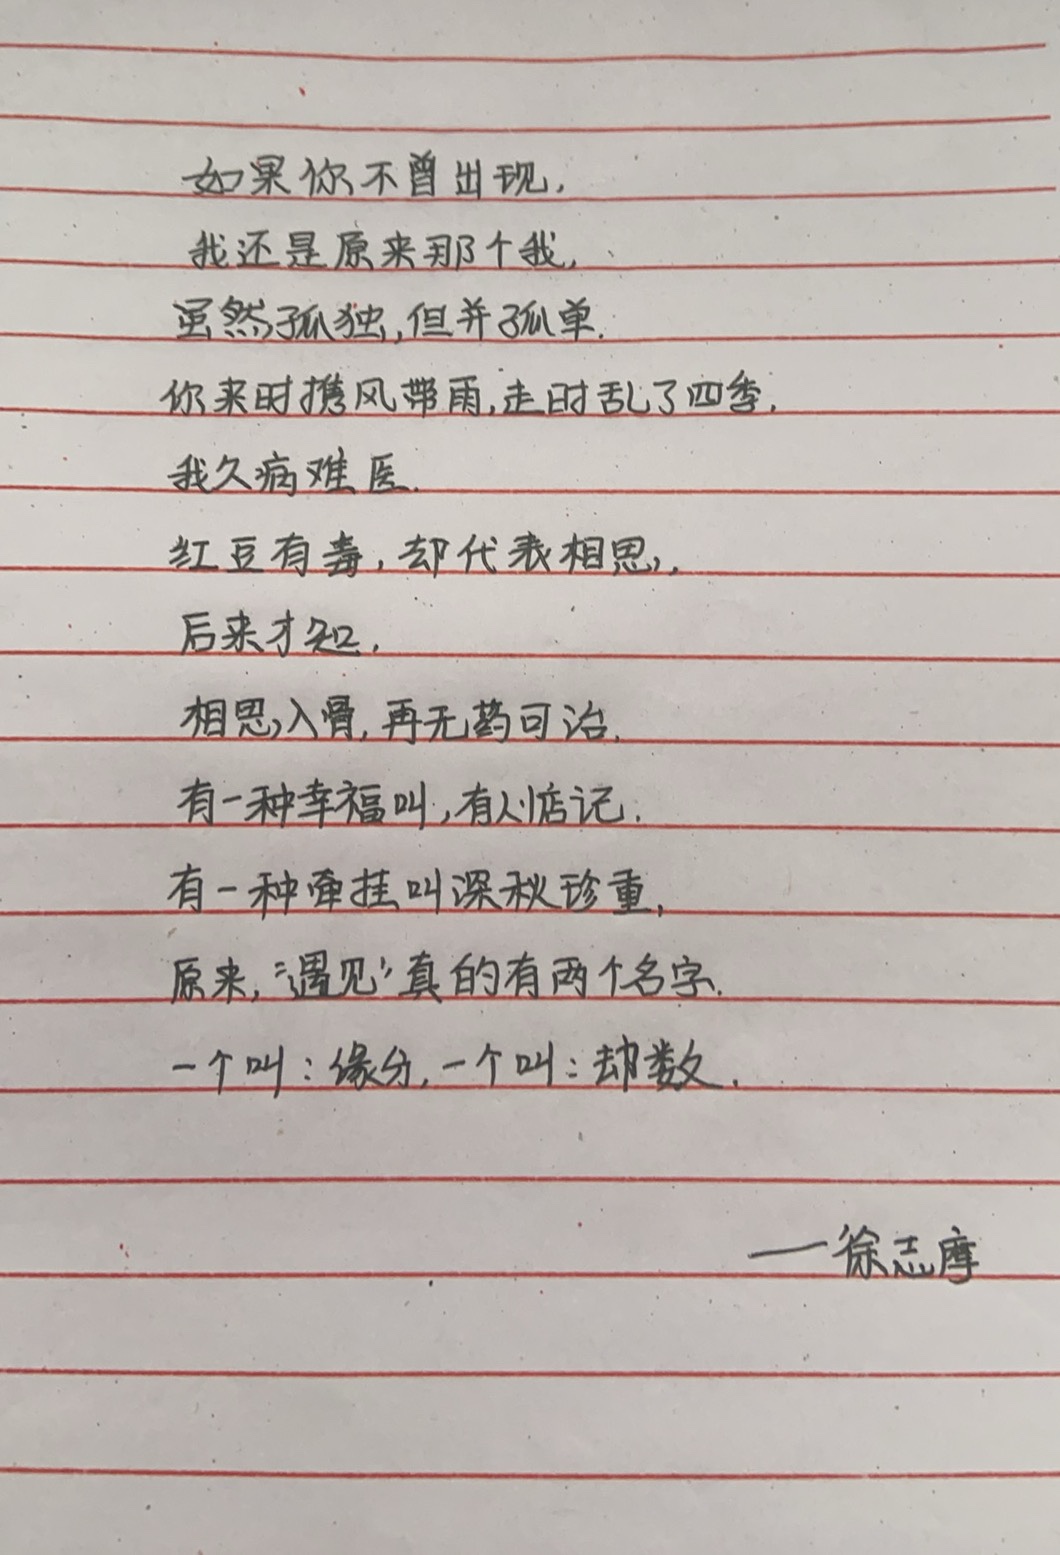 如果你不曾出现,
我还是原来那个我,
虽然孤独,但并孤单.
你来时携风带雨,走时乱了四季.
我久病难医.
红豆有毒,却代表相思,
后来才知.
相思入骨,再无药可治.
有一种幸福叫,有人惦记.
有一种牵挂叫深秋珍重,
原来,“遇见”真的有两个名字.
一个叫:缘分,一个叫:劫数.
——徐志摩